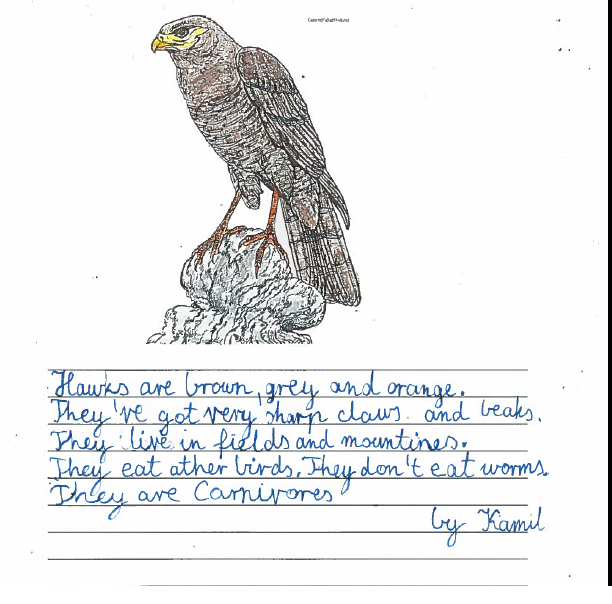 Hawks are brown, grey and orange.
They've got very sharp claws and beaks.
They live in fields and mountines.
They eat ather birds. They don't eat worms.
They are Carnivores
by Kamil